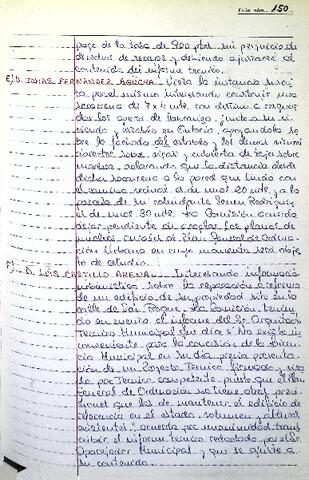 Folio núm. 150
pago de la tasa de 900 ptas. sin perjuicio de
derechos de terceros y debiendo ajustarse al
contenido del informe técnico.
E) D. TOMAS FERNANDEZ - Vista la instancia suscri
ta por el mismo interesando construir una
de 7 x 4 mts. con destino a
dar los aperos de labranza, junto a su vi
vienda y establo en apoyándola so
bre la fachada del establo y los demás
sobre y cubierta de teja sobre
madera, aclarando que la distancia desde
dicha a la pared que linda con
el camino vecinal es de unos 20 mts. y a la
de su colindante Rodríguez
es de unos 30 mts. La Comisión acuerda
dejar pendiente de los planos de
Plan General de Ordena
ción Urbana en cuyo momento será obje
to de estudio.
F) D. LUIS CASTILLO ARENA - Interesando información
urbanística sobre la reparación o reforma
de un edificio de su propiedad sito en la
calle de San Roque. La Comisión tenien
do en cuenta el informe del Sr. Arquitecto
Técnico Municipal que dice: No existe in
conveniente para la concesión de la licen
cia Municipal en su día, previa presenta
ción de un Proyecto Técnico, firmado y visa
do por Técnico competente, puesto que el Plan
General de Ordenación no tiene
que los de mantener el edificio de
referencia en el estado, volumen y altura
existentes, acuerda por unanimidad trans
cribir el informe técnico redactado por el Sr.
Aparejador Municipal y que se ajuste a
su contenido.